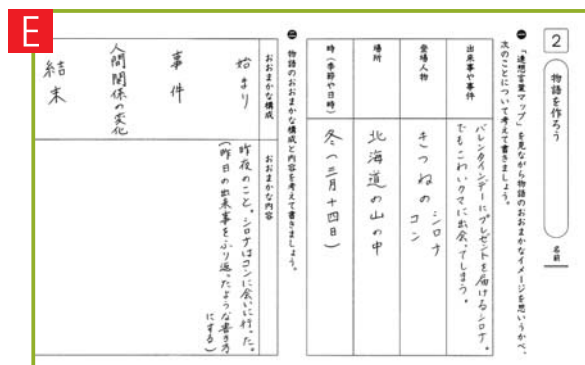 E
2
物語を作ろう
名前
一 「連想言葉マップ」を見ながら物語のおおまかなイメージを思いうかべ、
次のことについて考えて書きましょう。
出来事や事件
バレンタインデーにプレゼントを届けるシロナ。
でもこわいクマに出会ってしまう。
登場人物
きつねの シロナ
コン
場所
北海道の山の中
時（季節や日時）
冬（三月十四日）
二 物語のおおまかな構成と内容を考えて書きましょう。
おおまかな構成
おおまかな内容
始まり
昨夜のこと。シロナはコンに会いに行った。
（昨日の出来事をふり返ったような書き方
にする）
事件
人間関係の変化
結末